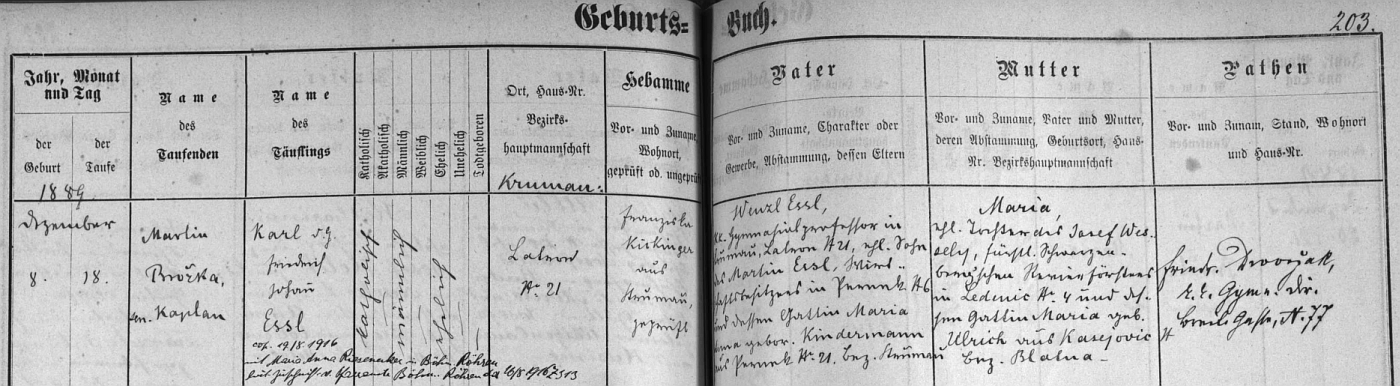 Geburts-Buch.
203.
Jahr, Monat und Tag
der Geburt
der Taufe
Name des Taufenden
Name des Täuflings
Katholisch
Akatholisch
Männlich
Weiblich
Ehelich
Unehelich
Todtgeboren
Ort, Haus-Nr.
Bezirks-
hauptmannschaft
Krumau:
Hebamme
Vor- und Zuname,
Wohnort,
geprüft od. ungeprüft
Vater
Vor- und Zuname, Charakter oder
Gewerbe, Abstammung, dessen Eltern
Mutter
Vor- und Zuname, Vater und Mutter,
deren Abstammung, Geburtsort, Haus-
Nr. Bezirkshauptmannschaft
Pathen
Vor- und Zunam, Stand, Wohnort
und Haus-Nr.
1889.
Dezember
8. 18.
Martin
Brožka,
Kaplan
Karl
Friedrich
Johann
Essl
cop. 19/8 1916
mit Maria Anna in Böhm. Röhren
Böhm. Röhren 1916
katholisch
männlich
ehelich
Latron
Nr 21
Franziska
Kickinger
aus
Krumau,
geprüft
Wenzl Essl,
k.k. Gymnasialprofessor in
Krumau, Latron N 21, ehl. Sohn
des Martin Essl, Wirt-
schaftsbesitzers in Pernek N 6
und dessen Gattin Maria
Anna gebor. Kindermann
aus Pernek Nr 21, bez. Krumau
Maria,
ehl. Tochter des Josef Wes-
sely, fürstl. Schwarzen-
bergischen Revierförsters
in Ledenic Nr. 4 und des-
sen Gattin Maria geb.
Ulrich aus Kasejovic
bez. Blatna
Friedr. Dworžak,
k.k. Gymn. Dir.
Breite Gasse, N. 77